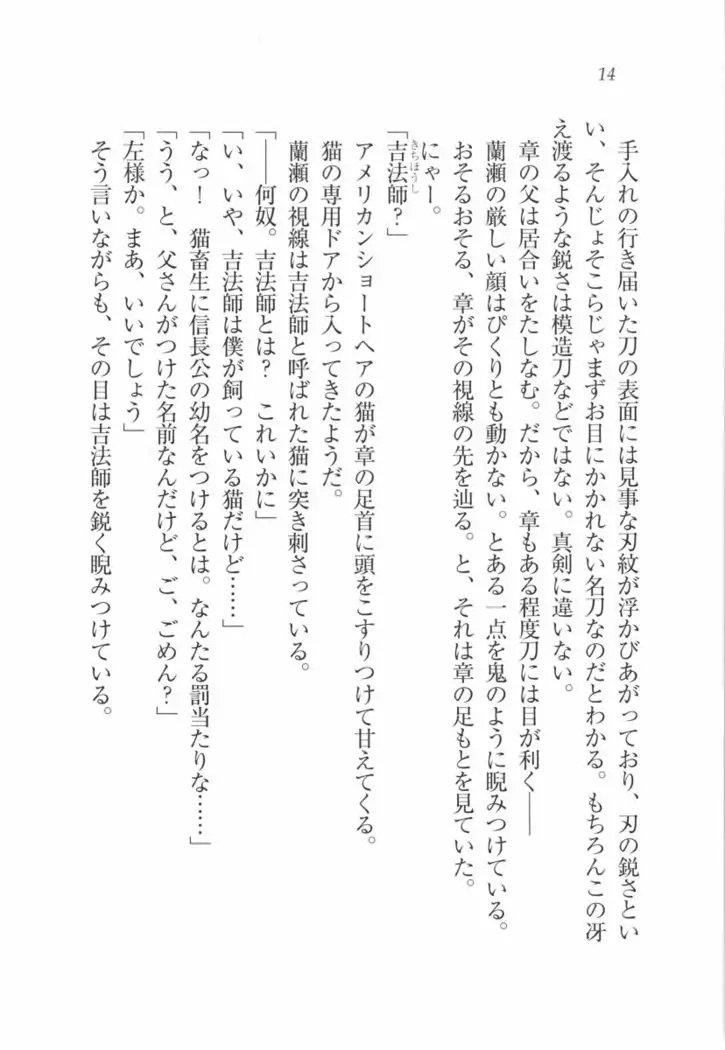 14
手入れの行き届いた刀の表面には見事な刃紋が浮かびあがっており、刃の鋭さとい
い、そんじょそこらじゃまずお目にかかれない名刀なのだとわかる。もちろんこの冴
え渡るような鋭さは模造刀などではない。真剣に違いない。
章の父は居合いをたしなむ。だから、章もある程度刀には目が利く――
蘭瀬の厳しい顔はぴくりとも動かない。とある一点を鬼のように睨みつけている。
おそるおそる、章がその視線の先を辿る。と、それは章の足もとを見ていた。
にゃー。
「吉法師?」
きちほうし
アメリカンショートヘアの猫が章の足首に頭をこすりつけて甘えてくる。
猫の専用ドアから入ってきたようだ。
蘭瀬の視線は吉法師と呼ばれた猫に突き刺さっている。
「――何奴。吉法師とは? これいかに」
「い、いや、吉法師は僕が飼っている猫だけど……」
「なっ! 猫畜生に信長公の幼名をつけるとは。なんたる罰当たりな……」
「うう、と、父さんがつけた名前なんだけど、ご、ごめん?」
「左様か。まあ、いいでしょう」
そう言いながらも、その目は吉法師を鋭く睨みつけている。